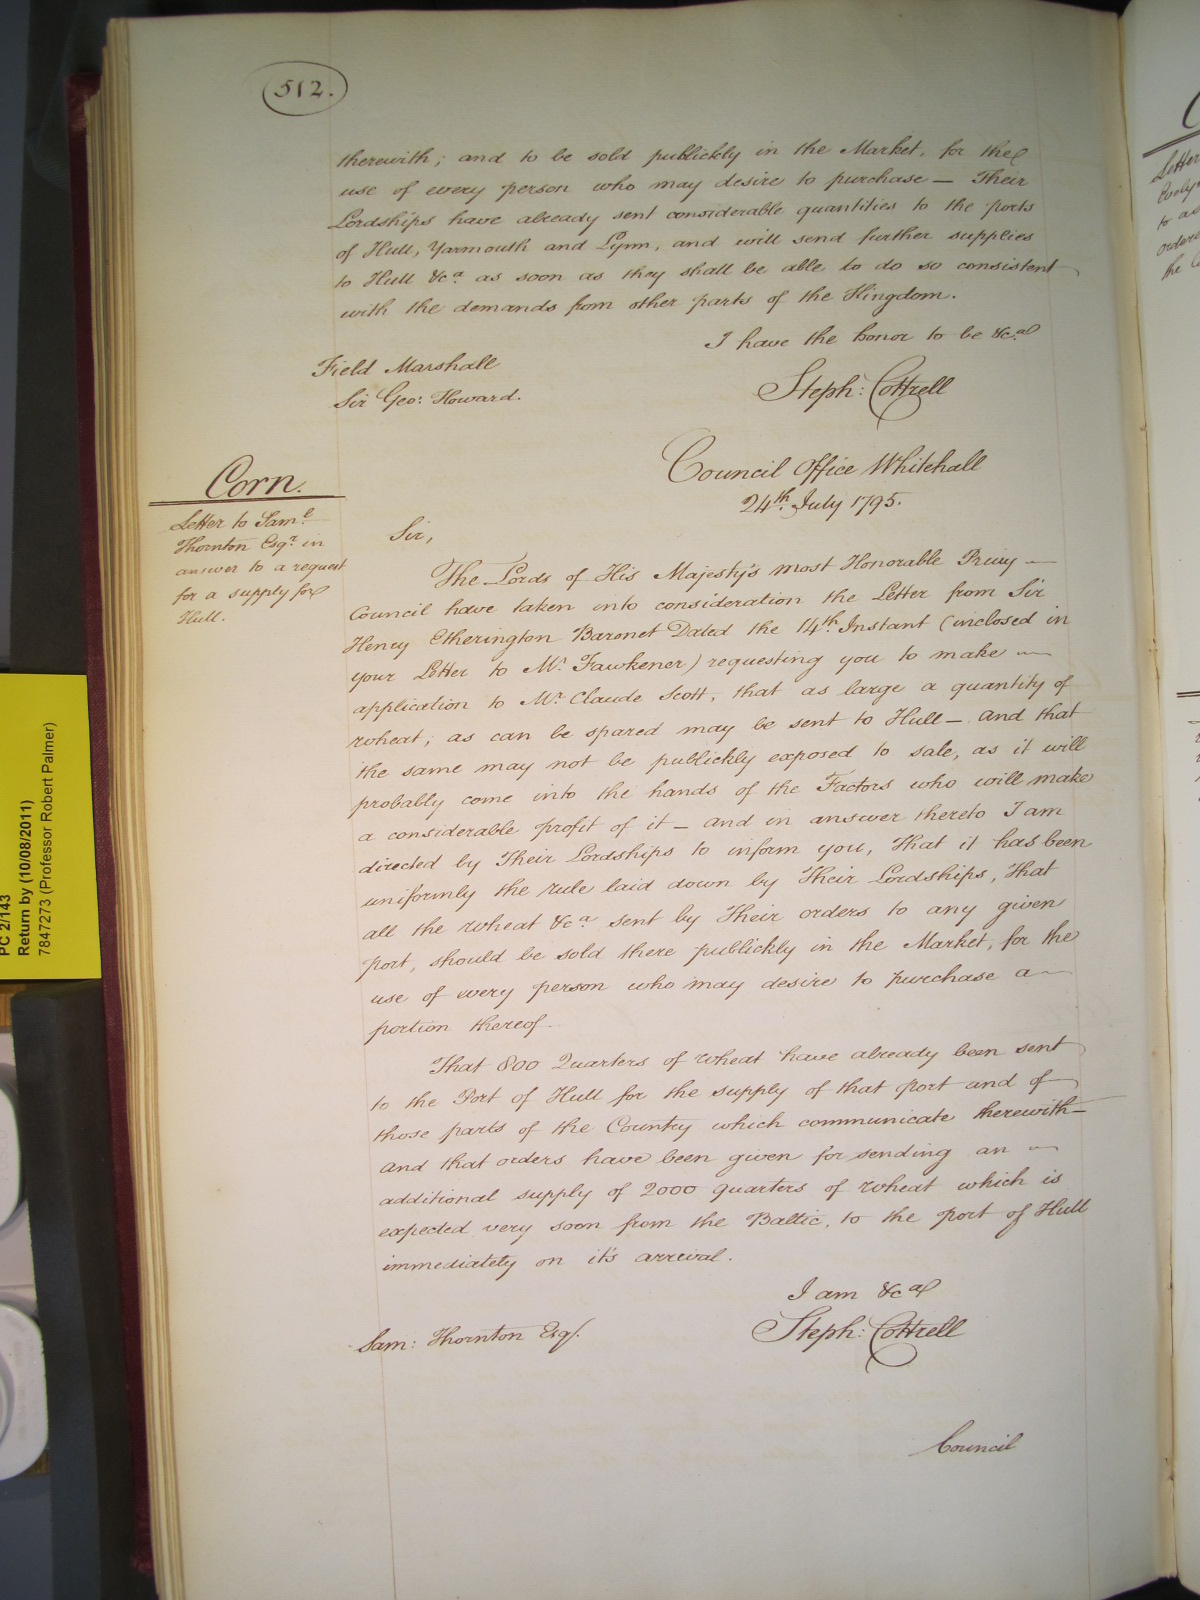 512.
therewith; and to be sold publickly in the Market, for the
use of every person who may desire to purchase — Their
Lordships have already sent considerable quantities to the ports
of Hull, Yarmouth and Lynn, and will send further supplies
to Hull &ca. as soon as they shall be able to do so consistent
with the demands from other parts of the Kingdom.
I have the honor to be &c.al
Field Marshall
Sir Geo: Howard.
Steph: Cottrell
Council Office Whitehall
24th. July 1795.
Corn.
Letter to Saml.
Thornton Esqr. in
answer to a request
for a supply for
Hull.
Sir,
The Lords of His Majesty's most Honorable Privy —
Council have taken into consideration the Letter from Sir
Henry Etherington Baronet Dated the 14th. Instant (inclosed in
your Letter to Mr. Fawkener) requesting you to make —
application to Mr. Claude Scott, that as large a quantity of
wheat, as can be spared may be sent to Hull — and that
the same may not be publickly exposed to sale, as it will
probably come into the hands of the Factors who will make
a considerable profit of it — and in answer thereto I am
directed by Their Lordships to inform you, That it has been
uniformly the rule laid down by Their Lordships, That
all the wheat &ca. sent by Their orders to any given
port, should be sold there publickly in the Market, for the
use of every person who may desire to purchase a —
portion thereof.
That 800 Quarters of wheat have already been sent
to the Port of Hull for the supply of that port and of
those parts of the Country which communicate therewith —
and that orders have been given for sending an —
additional supply of 2000 quarters of wheat which is
expected very soon from the Baltic, to the port of Hull
immediately on it's arrival.
I am &c al
Sam: Thornton Esqr.
Steph: Cottrell
Council
PC 2/143
Return by (10/08/2011)
7847273 (Professor Robert Palmer)
Letter
to
the